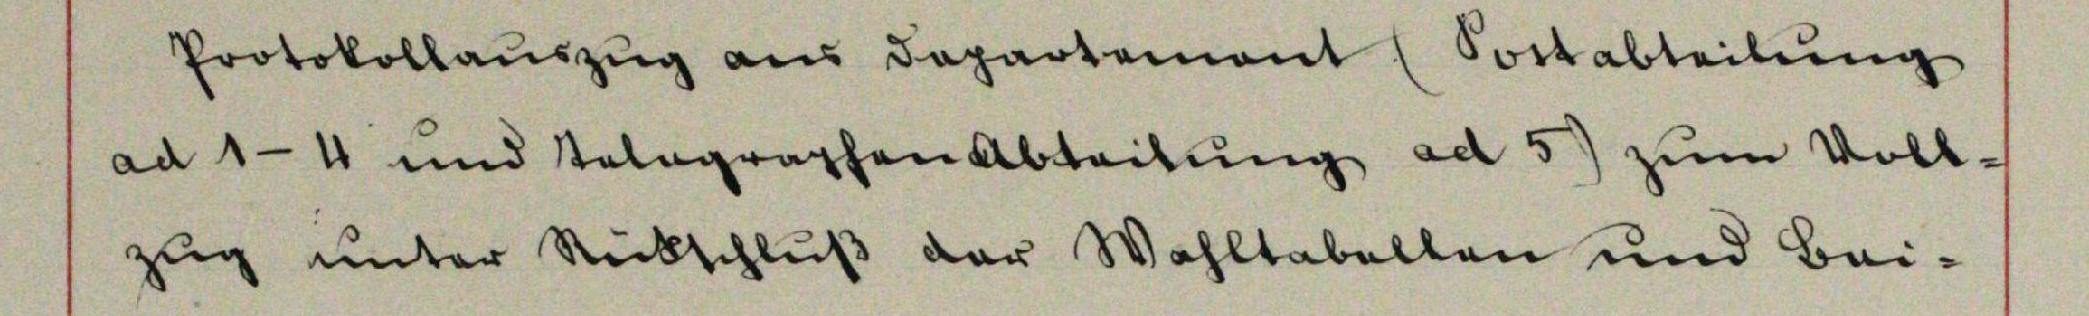 Protokollauszug ans Departement (Postabteilung
ad 1-4 und TelegraphenAbteilung ad 5) zum Voll=
zug unter Rükschluß der Wahltabellen und Bei=